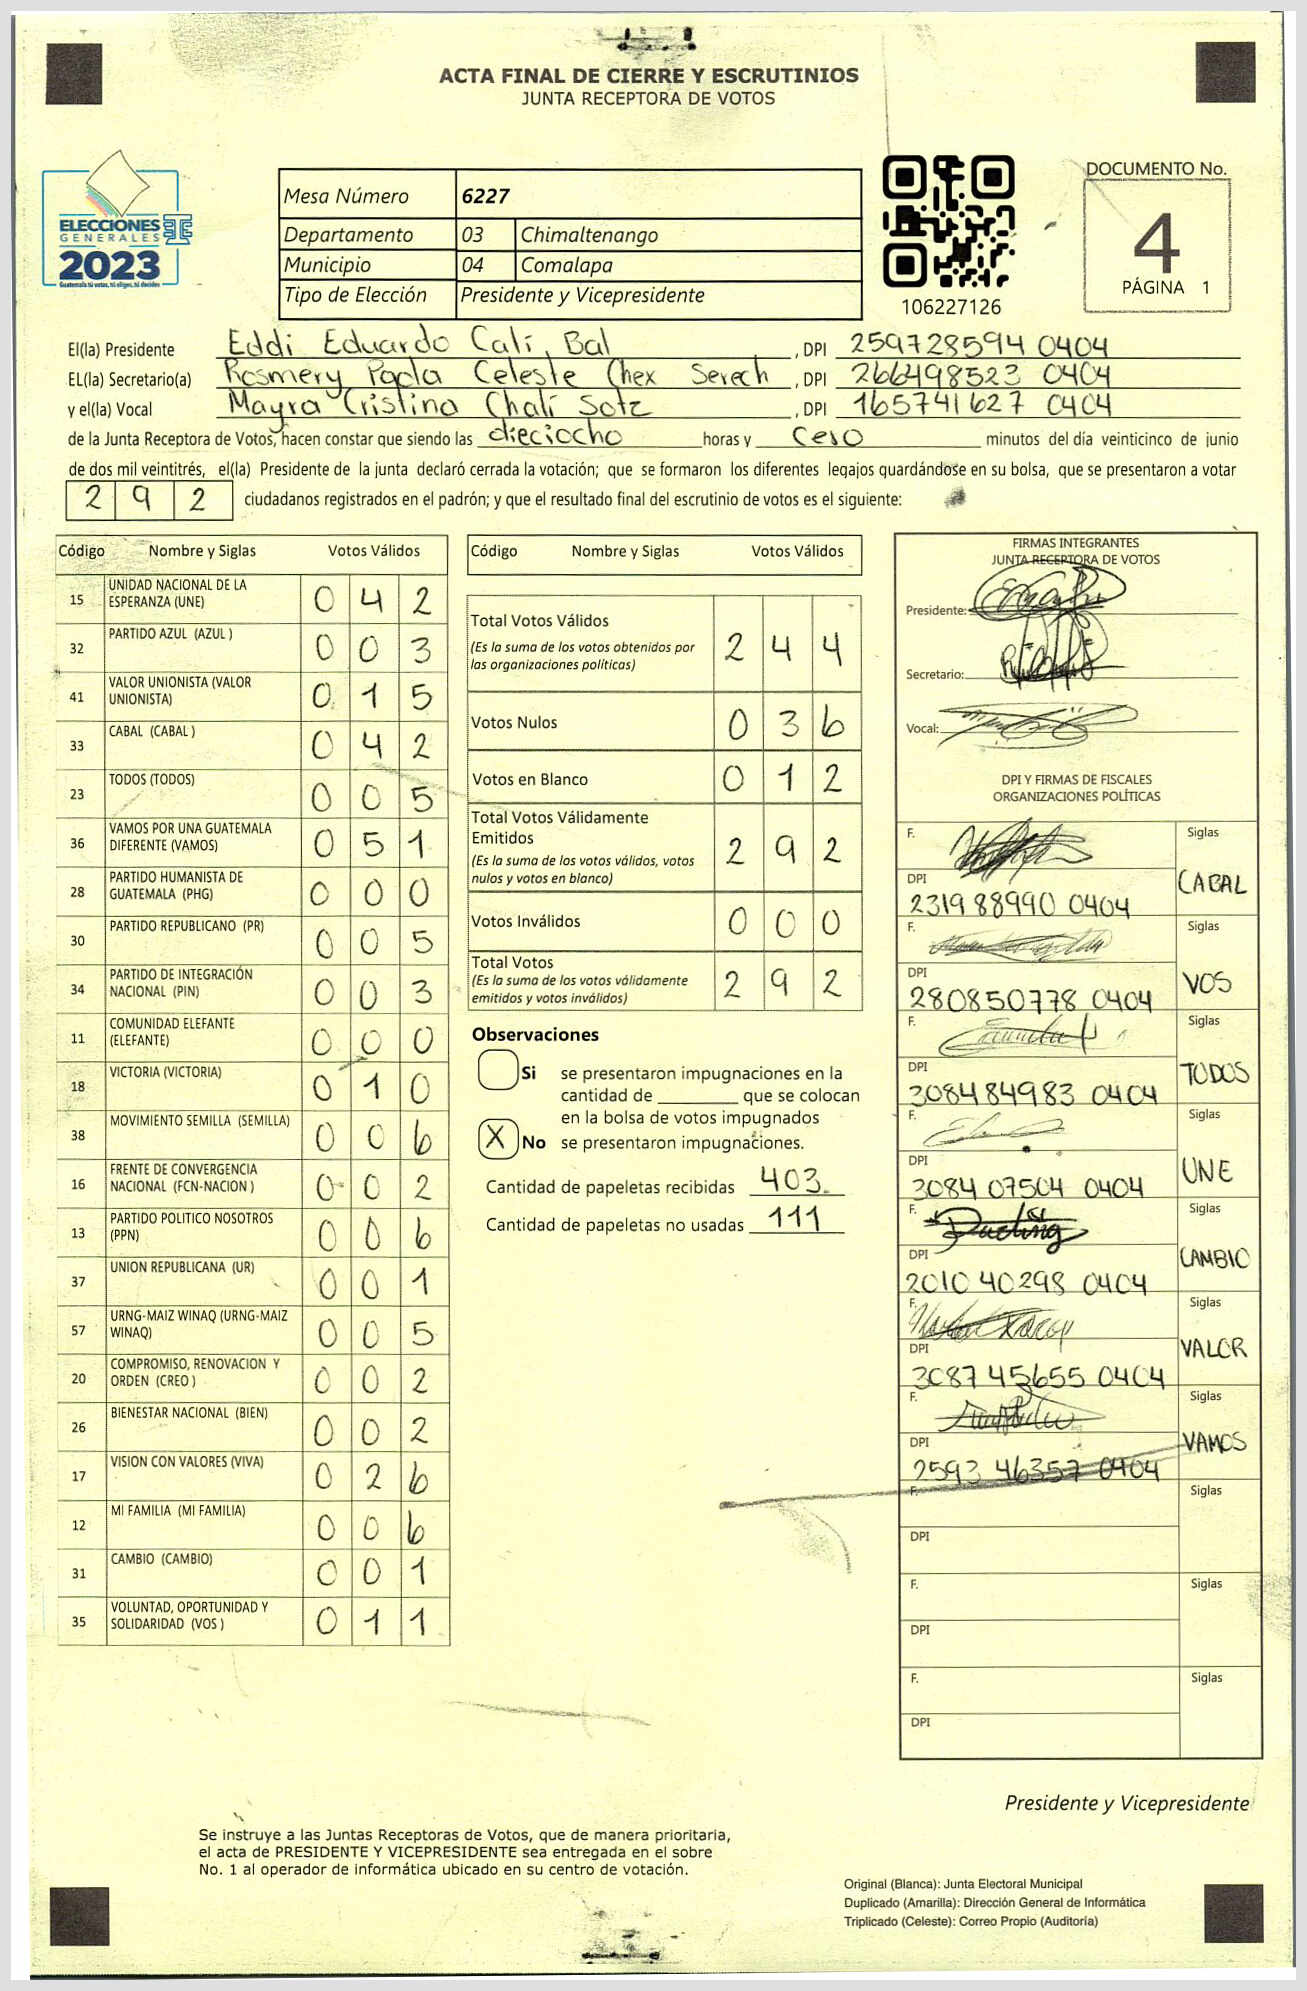 ACTA FINAL DE CIERRE Y ESCRUTINIOS
JUNTA RECEPTORA DE VOTOS
ELECCIONES
GENERALES
2023
Guatemala tú votas, tú eliges, tú decides
Mesa Número 6227
Departamento 03 Chimaltenango
Municipio 04 Comalapa
Tipo de Elección Presidente y Vicepresidente
106227126
DOCUMENTO No.
4
PÁGINA 1
El(la) Presidente Eddi Eduardo Calí Bal, DPI 259728594 0404
EL(la) Secretario(a) Rosmery Paola Celeste Chex Serech, DPI 266498523 0404
y el(la) Vocal Mayra Cristina Chalí Sotz, DPI 165741627 0404
de la Junta Receptora de Votos, hacen constar que siendo las dieciocho horas y cero minutos del día veinticinco de junio
de dos mil veintitrés, el(la) Presidente de la junta declaró cerrada la votación; que se formaron los diferentes legajos quardándose en su bolsa, que se presentaron a votar
292 ciudadanos registrados en el padrón; y que el resultado final del escrutinio de votos es el siguiente:
Código Nombre y Siglas Votos Válidos
15 UNIDAD NACIONAL DE LA ESPERANZA (UNE) 042
32 PARTIDO AZUL (AZUL ) 003
41 VALOR UNIONISTA (VALOR UNIONISTA) 015
33 CABAL (CABAL ) 042
23 TODOS (TODOS) 005
36 VAMOS POR UNA GUATEMALA DIFERENTE (VAMOS) 051
28 PARTIDO HUMANISTA DE GUATEMALA (PHG) 000
30 PARTIDO REPUBLICANO (PR) 005
34 PARTIDO DE INTEGRACIÓN NACIONAL (PIN) 003
11 COMUNIDAD ELEFANTE (ELEFANTE) 000
18 VICTORIA (VICTORIA) 010
38 MOVIMIENTO SEMILLA (SEMILLA) 006
16 FRENTE DE CONVERGENCIA NACIONAL (FCN-NACION ) 002
13 PARTIDO POLITICO NOSOTROS (PPN) 006
37 UNION REPUBLICANA (UR) 001
57 URNG-MAIZ WINAQ (URNG-MAIZ WINAQ) 005
20 COMPROMISO, RENOVACION Y ORDEN (CREO ) 002
26 BIENESTAR NACIONAL (BIEN) 002
17 VISION CON VALORES (VIVA) 026
12 MI FAMILIA (MI FAMILIA) 006
31 CAMBIO (CAMBIO) 001
35 VOLUNTAD, OPORTUNIDAD Y SOLIDARIDAD (VOS ) 011
Código Nombre y Siglas Votos Válidos
Total Votos Válidos 244
(Es la suma de los votos obtenidos por
las organizaciones políticas)
Votos Nulos 036
Votos en Blanco 012
Total Votos Válidamente
Emitidos 292
(Es la suma de los votos válidos, votos
nulos y votos en blanco)
Votos Inválidos 000
Total Votos 292
(Es la suma de los votos válidamente
emitidos y votos inválidos)
Observaciones
Si se presentaron impugnaciones en la
cantidad de ________ que se colocan
en la bolsa de votos impugnados
X No se presentaron impugnaciones.
Cantidad de papeletas recibidas 403
Cantidad de papeletas no usadas 111
FIRMAS INTEGRANTES
JUNTA RECEPTORA DE VOTOS
Presidente:
Secretario:
Vocal:
DPI Y FIRMAS DE FISCALES
ORGANIZACIONES POLÍTICAS
F. Siglas
DPI CABAL
2319 88990 0404
F. Siglas
DPI VOS
280850778 0404
F. Siglas
DPI TODOS
3084 84983 0404
F. Siglas
DPI UNE
3084 07504 0404
F. Siglas
DPI CAMBIO
2010 40298 0404
F. Siglas
DPI VALOR
3087 45655 0404
F. Siglas
DPI VAMOS
2593 46357 0404
F. Siglas
DPI
F. Siglas
DPI
F. Siglas
DPI
Presidente y Vicepresidente
Se instruye a las Juntas Receptoras de Votos, que de manera prioritaria,
el acta de PRESIDENTE Y VICEPRESIDENTE sea entregada en el sobre
No. 1 al operador de informática ubicado en su centro de votación.
Original (Blanca): Junta Electoral Municipal
Duplicado (Amarilla): Dirección General de Informática
Triplicado (Celeste): Correo Propio (Auditoría)